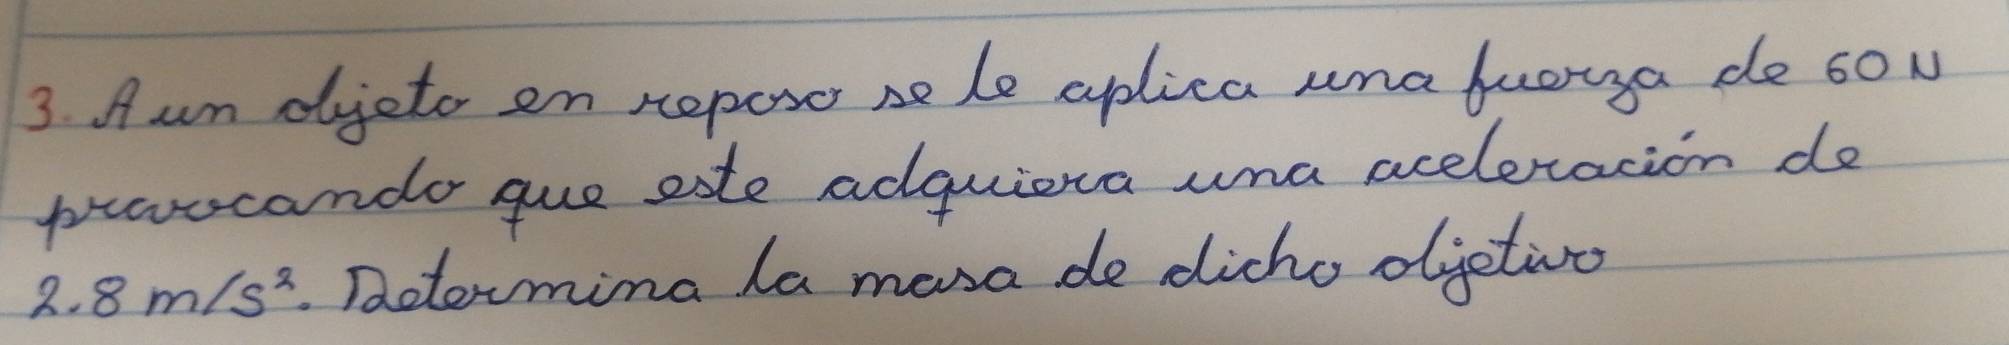 3. A un objeto en reposo se le aplica una fuerza de 60 N
provocando que este adquiera una aceleración de
2.8 m/s². Determina la masa de dicho objetivo